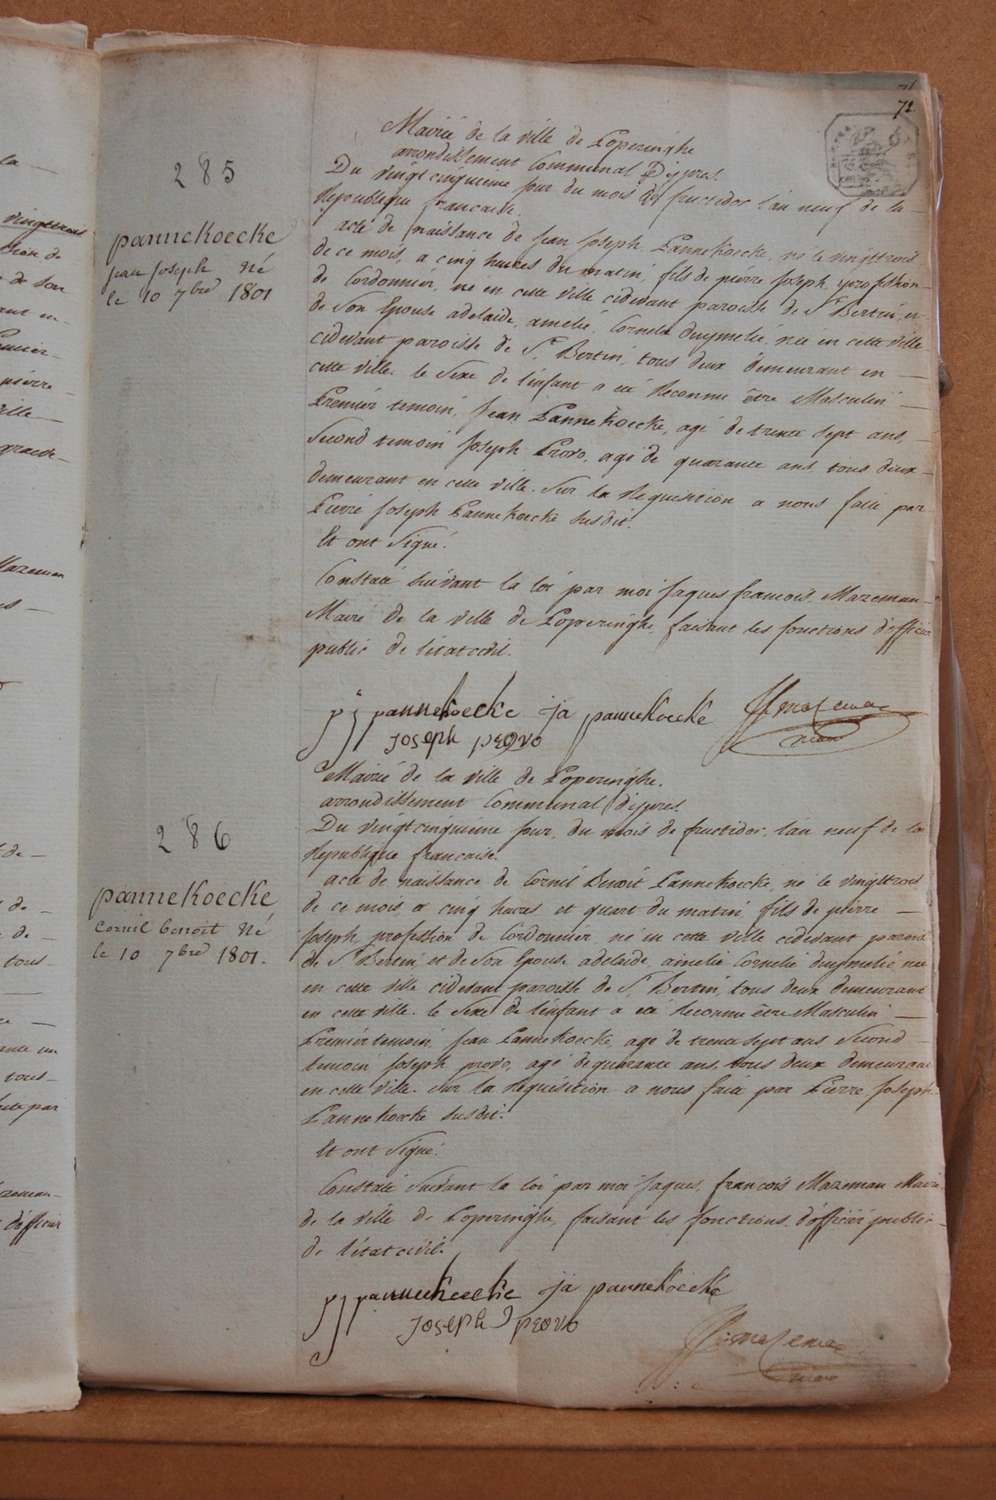 71
72
285
pannekoecke
jean joseph Né
le 10 7bre 1801
Mairié de la ville de Poperinghe
arrondissement Communal Dijpres
Du vingtcinquieme jour du mois de fructidor l'an neuf de la
Republique francaise.
acte de naissance de Jean Joseph Pannekoecke, né le vingttrois
de ce mois, a cinq heures du matin, fils de pierre Joseph, profession
de Cordonnier, né en cette ville cidevant paroisse de St Bertin, et
de son Epouse adelaide, amelié, Cornelie née en cette ville
cidevant paroisse de St Bertin, tous deux demeurant en
cette ville. le Sexe de l'enfant a été Reconnu être Masculin
Premier temoin, Jean Pannekoecke, agé de trente sept ans,
Second temoin Joseph Provo, agé de quarante ans tous deux
demeurant en cette ville. Sur la Requisition a nous faite par
Pierre Joseph Pannekoecke susdit.
Et ont Signé.
Constaté suivant la loi par moi Jaques francois Mazeman
Maire de la ville de Poperinghe, faisant les fonctions d'officier
public de l'etat civil.
pj pannekoecke ja pannekoecke
joseph provo
Mairié de la ville de Poperinghe.
arrondissement Communal dijpres.
286
pannekoecke
Cornil benoit Né
le 10 7bre 1801.
Du vingtcinquieme jour, du mois de fructidor, l'an neuf de la
Republique francaise.
acte de naissance de Cornil Benoit Pannekoecke, né le vingttrois
de ce mois, a cinq heures et quart du matin fils de pierre
Joseph profession de Cordonnier né en cette ville cidevant paroisse
de St Bertin, et de son Epouse adelaide, amelie Cornelie née
en cette ville cidevant paroisse de St Bertin, tous deux demeurant
en cette ville. le Sexe de l'enfant a été Reconnu être Masculin
Premier temoin Jean Pannekoecke, agé de trente sept ans Second
temoin Joseph provo, agé de quarante ans, tous deux demeurant
en cette ville. Sur la Requisition a nous faite par Pierre Joseph
Pannekoecke susdit.
Et ont Signé.
Constaté Suivant la loi par moi Jaques, francois Mazeman Maire
de la ville de Poperinghe, faisant les fonctions, d'officié public
de l'etat civil.
pj pannekoecke ja pannekoecke
joseph provo